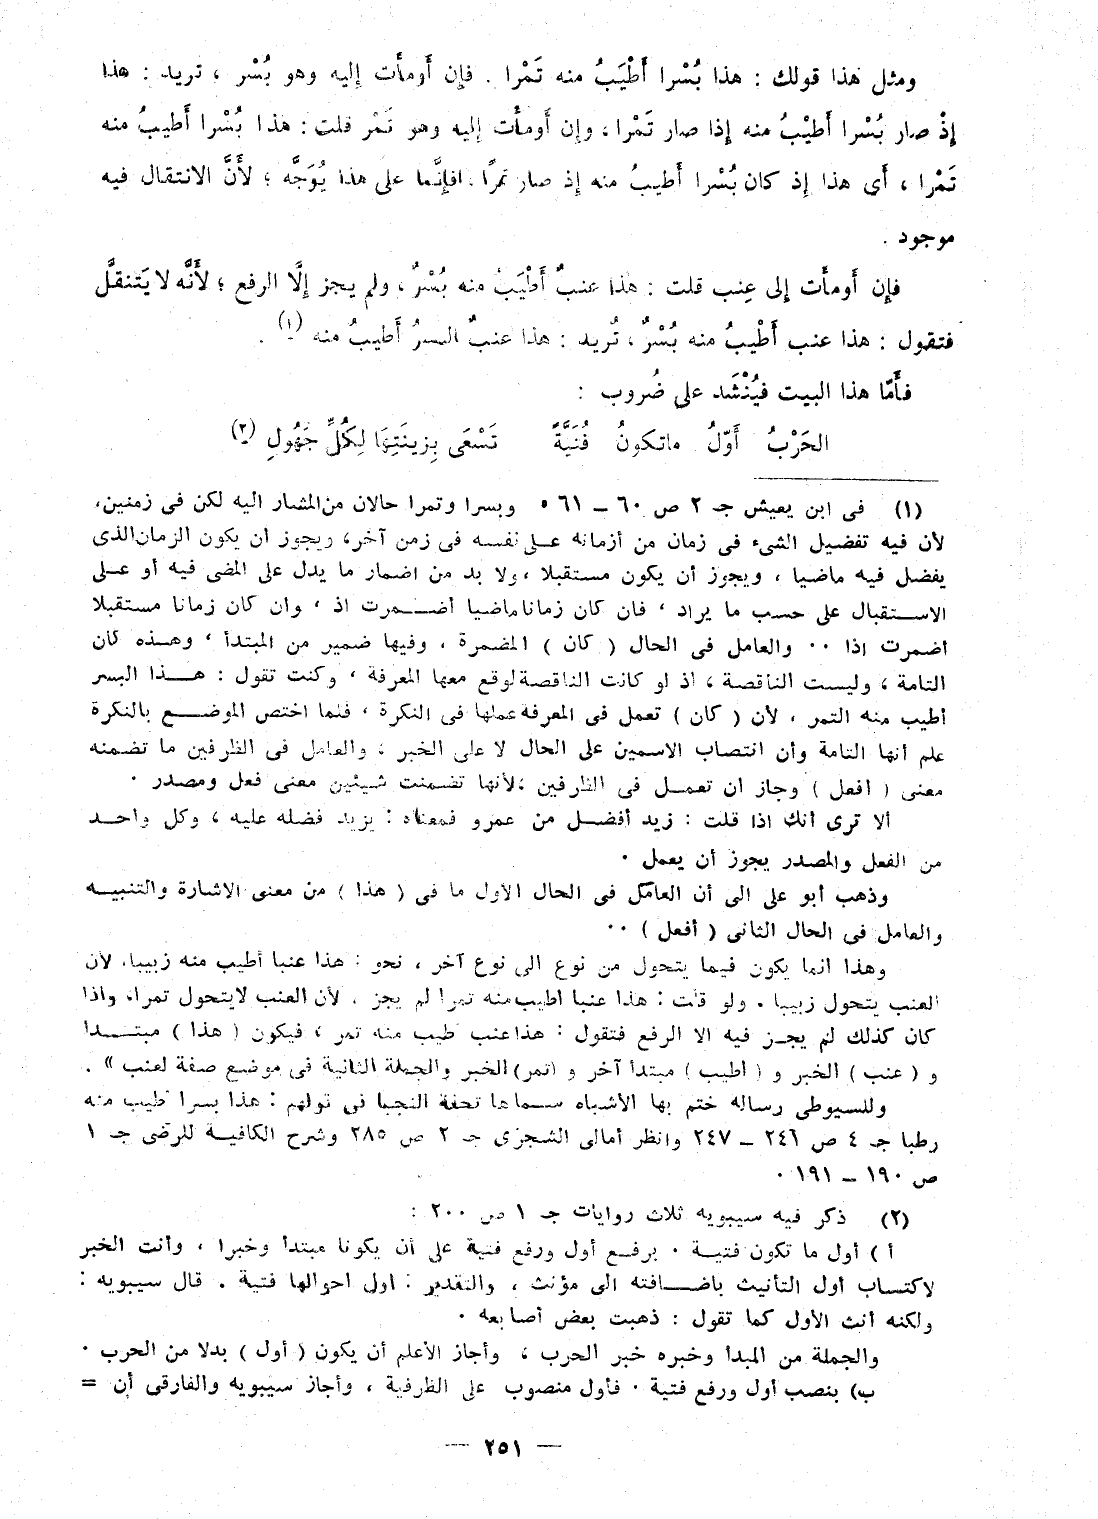 ومثل هذا قولك : هذا بُسْرا أَطْيَبُ منه تَمْرا . فإن أَومأْت إليه وهو بُسْر ، تريد : هذا
إذْ صار بُسْرا أَطْيْبُ منه إذا صار تَمْرا ، وإن أَومأْت إليه وهو تَمْر قلت : هذا بُسْرا أَطيبُ منه
تَمْرا ، أَى هذا إذ كان بُسْرا أَطيبُ منه إذ صار تمرًا . فإنَّما على هذا يُوَجَّه ؛ لأَنَّ الانتقال فيه
موجود .
فإن أَومأْت إلى عِنب قلت : هذا عنبٌ أَطْيَبُ منه بُسْرٌ ، ولم يجز إلَّا الرفع ؛ لأَنَّه لا يَتنقلَّ
فتقول : هذا عنب أَطْيبُ منه بُسْرٌ ، تُريد : هذا عنبٌ البسرُ أَطيبُ منه (١) .
فأَمّا هذا البيت فيُنْشَد على ضُروب :
الحَرْبُ أَوّلُ ماتكونُ فُتَيَّةٌ تَسْعَى بِزينَتِهَا لِكُلِّ جَهُولِ (٢)
(١) فى ابن يعيش جـ ٢ ص ٦٠ – ٦١ « وبسرا وتمرا حالان من المشار اليه لكن فى زمنين،
لأن فيه تفضيل الشىء فى زمان من أزمانه على نفسه فى زمن آخر، ويجوز أن يكون الزمان الذى
يفضل فيه ماضيا ، ويجوز أن يكون مستقبلا ، ولا بد من اضمار ما يدل على المضى فيه أو على
الاستقبال على حسب ما يراد ، فان كان زمانا ماضيا أضمرت اذ ، وان كان زمانا مستقبلا
أضمرت اذا ٠٠ والعامل فى الحال ( كان ) المضمرة ، وفيها ضمير من المبتدأ ، وهذه كان
التامة ، وليست الناقصة ، اذ لو كانت الناقصة لوقع معها المعرفة ، وكنت تقول : هذا البسر
أطيب منه التمر ، لأن ( كان ) تعمل فى المعرفة عملها فى النكرة ، فلما اختص الموضع بالنكرة
علم أنها التامة وأن انتصاب الاسمين على الحال لا على الخبر ، والعامل فى الظرفين ما تضمنه
معنى ( أفعل ) وجاز أن تعمل فى الظرفين ؛لأنها تضمنت شيئين معنى فعل ومصدر .
ألا ترى أنك اذا قلت : زيد أفضل من عمرو فمعناه : يزيد فضله عليه ، وكل واحد
من الفعل والمصدر يجوز أن يعمل .
وذهب أبو على الى أن العامل فى الحال الأول ما فى ( هذا ) من معنى الاشارة والتنبيه
والعامل فى الحال الثانى ( أفعل ) ٠٠
وهذا انما يكون فيما يتحول من نوع الى نوع آخر ، نحو : هذا عنبا أطيب منه زبيبا، لأن
العنب يتحول زبيبا . ولو قلت : هذا عنبا أطيب منه تمرا لم يجز ، لأن العنب لايتحول تمرا، واذا
كان كذلك لم يجز فيه الا الرفع فتقول : هذا عنب أطيب منه تمر ، فيكون ( هذا ) مبتدا
و ( عنب ) الخبر و ( أطيب ) مبتدأ آخر و (تمر) الخبر والجملة الثانية فى موضع صفة لعنب » .
وللسيوطى رساله ختم بها الأشباه سماها تحفة النجبا فى قولهم : هذا بسرا أطيب منه
رطبا جـ ٤ ص ٢٤٦ – ٢٤٧ وانظر أمالى الشجزى جـ ٢ ص ٢٨٥ وشرح الكافية للرضى جـ ١
ص ١٩٠ – ١٩١ .
(٢) ذكر فيه سيبويه ثلاث روايات جـ ١ ص ٢٠٠ :
أ ) أول ما تكون فتية . برفع أول ورفع فتية على أن يكونا مبتدأ وخبرا ، وأنت الخبر
لاكتساب أول التأنيث باضافته الى مؤنث ، والتقدير : أول أحوالها فتية . قال سيبويه :
ولكنه أنث الأول كما تقول : ذهبت بعض أصابعه .
والجملة من المبدأ وخبره خبر الحرب ، وأجاز الأعلم أن يكون ( أول ) بدلا من الحرب .
ب) بنصب أول ورفع فتية . فأول منصوب على الظرفية ، وأجاز سيبويه والفارقى أن =
— ٢٥١ —